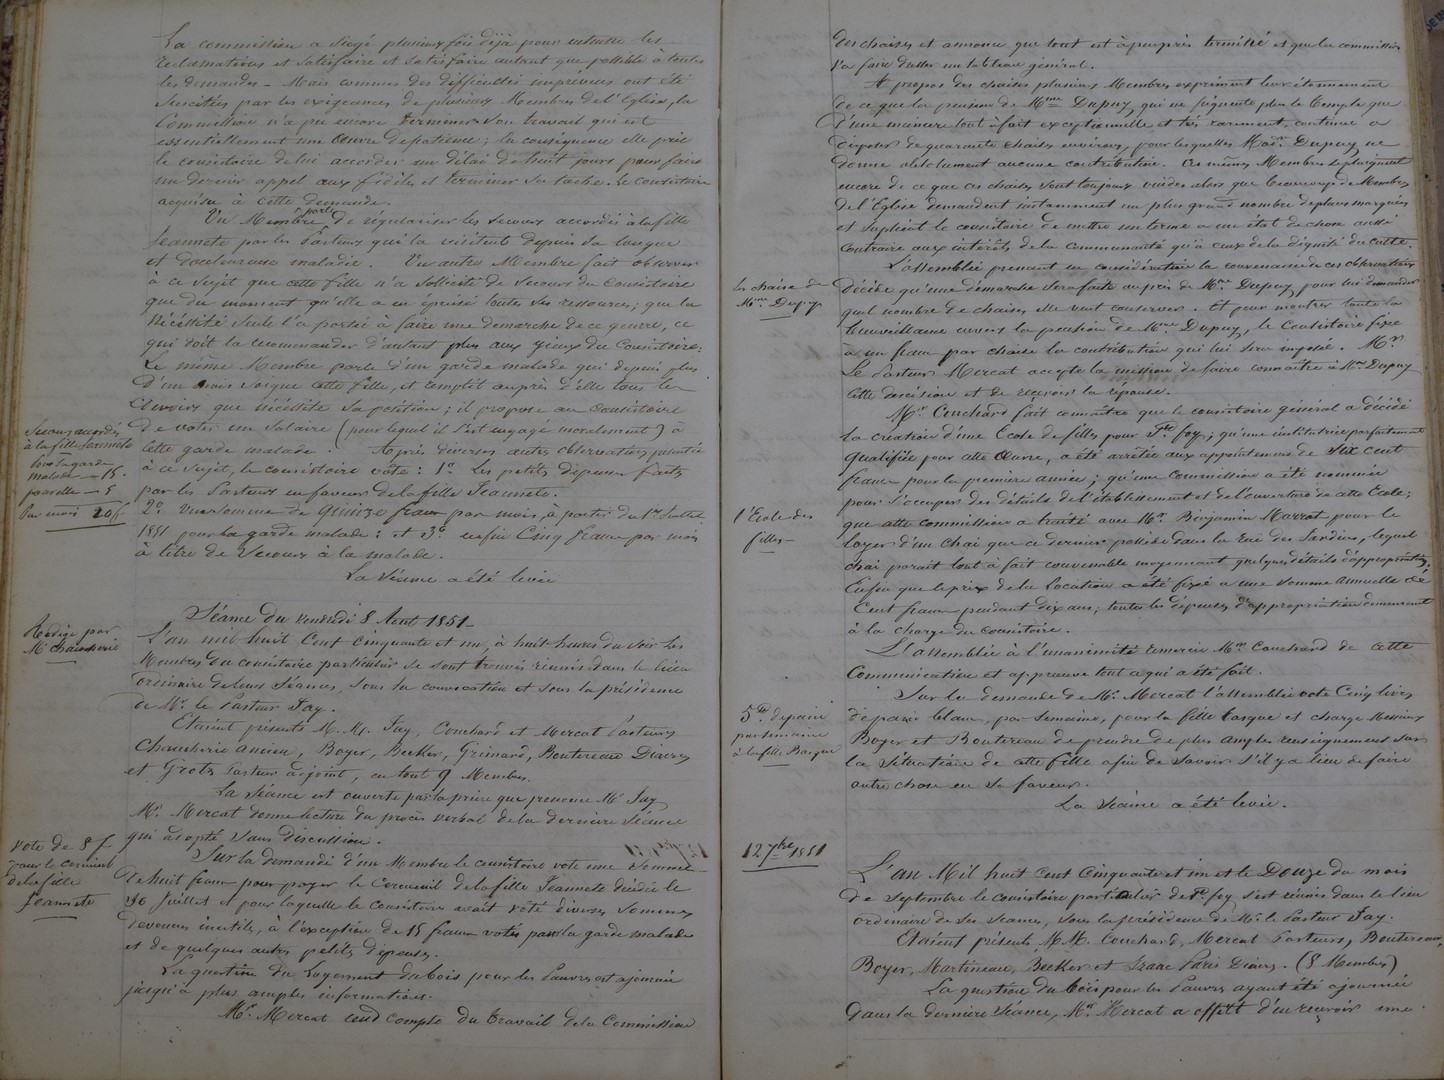 La commission a siégé plusieurs fois déjà pour entendre les
réclamations et satisfaire et satisfaire autant que possible à toutes
les demandes - Mais comme des difficultés imprévues ont été
suscitées par les exigences de plusieurs Membres de l'Eglise, la
Commission n'a pu encore terminer son travail qui est
essentiellement une œuvre de patience; la conséquence elle prie
le consistoire de lui accorder un délai de huit jours pour faire
un dernier appel aux fidèles et terminer sa tache. Le consistoire
acquise à cette demande.
Un Membre parle de régulariser les secours accordés à la fille
Jeannete par les Pasteurs qui la visitent depuis sa longue
et douloureuse maladie. Un autre Membre fait observer
à ce sujet que cette fille n'a sollicité de secours du Consistoire
que du moment qu'elle a eu épuisé toutes ses ressources; que la
Nécéssité seule l'a portée à faire une demarche de ce genre, ce
qui doit la recommander d'autant plus aux yieux du Consistoire:
Le même Membre parle d'un garde malade qui depuis plus
d'un mois soigne cette fille, et remplit auprès d'elle tous les
devoirs que nécéssite sa position; il propose au Consistoire
de voter un salaire (pour lequel il s'est engagé moralement) à
cette garde malade. Après diverses autres observations
à ce sujet, le consistoire vote: 1° Les petits dépenses faites
par les Pasteurs en faveur de la fille Jeannete.
2° une somme de quinze francs par mois, à partir du 1er Juillet
1851 pour la garde malade: et 3° enfin Cinq francs par mois
à titre de secours à la malade.
La séance a été levée
Secours accordés
à la fille Jeannete
pour la garde
malade — 15.
pour elle — 5
Par mois 20 f.
Séance du vendredi 8 Aout 1851
Rédigé par
Mr chaucherie
L'an mil huit Cent Cinquante et un, à huit heures du soir les
Membres du consistoire particulier se sont trouvés réunis dans le lieu
ordinaire de leurs séances, sous la convocation et sous la présidence
de Mr. le Pasteur Jay.
Etaient présents M. M. Jay, Couchard et Mercat Pasteurs
Chaucherie ancien, Boyer, Becker, Grenard, Boutereau Diacres
et Grotz Pasteur adjoint, en tout 9 Membres.
La séance est ouverte par la prière que prononce Mr Jay
Mr. Mercat donne lecture du procès verbal de la dernière séance
qui adopté sans discussion.
vote de 8 f.
pour le cercueil
de la fille
Jeannete
Sur la demande d'un Membre le consistoire vote une somme
de huit francs pour payer le Cercueuil de la fille Jeannete décédée le
Juillet et pour laquelle le Consistoire avait voté diverses sommes
devenues inutile, à l'exception de 15 francs votés pour la garde malade
et de quelques autres petits dépenses.
La question du Logement du bois pour les Pauvres est ajournée
jusqu'à plus amples informations.
Mr. Mercat rend compte du travail de la Commission
des chaises et annonce que tout est à peu près terminé et que la commission
va faire dresser un tableau général.
A propos des chaises plusieurs Membres expriment leur étonnement
de ce que la pension de Mme Dupuy, qui ne fréquente plus le Temple que
d'une manière tout à fait exceptionnelle et très rarement, continue à
disposer de quarante chaises environ, pour lesquelles Made Dupuy ne
donne absolument aucune contribution. Ces mêmes Membres se plaignent
encore de ce que ces chaises sont toujours vuides alors que beaucoup de Membres
de l'Eglise demandent instamment un plus grand nombre de places marquées
et suplient le consistoire de mettre un terme à un état de chose aussi
contraire aux intérêts de la communauté qu'à ceux de la dignité du culte.
les chaise de
Mme Dupuy
L'assemblée prenant en considération la convenance de ces observations
Décide qu'une démarche sera faite auprès de Mme Dupuy pour lui demander
quel nombre de chaises elle veut conserver. Et pour montrer toute sa
bienveillance envers la pension de Mme Dupuy, le Consistoire fixe
à un franc par chaise la contribution qui lui sera imposée. Mr
Le Pasteur Mercat accepte la mission de faire connaitre à Mme Dupuy
cette décision et de recevoir la réponse.
l'Ecole des
filles —
Mr. Couchard fait connaitre que le consistoire général a décidé
la création d'une Ecole de filles pour Ste foy; qu'une institutrice parfaitement
qualifiée pour cette Œuvre, a été arrêtée aux appointemens de Six cent
francs pour la première année; qu'une commission a été nommée
pour s'occuper des détails de l'établissement et de l'ouverture de cette Ecole;
que cette commission a traité avec Mr. Benjamin Marrat pour le
loyer d'un Chai que ce dernier possède dans la rue des Jardins, lequel
chai parait tout à fait convenable moyennant quelques détails d'appropriation.
Enfin que le prix de la location a été fixé a une somme annuelle de
Cent francs pendant dix ans; toutes les dépenses d'appropriation demeurant
à la charge du consistoire.
L'assemblée à l'unanimité remercie Mr Couchard de cette
Communication et approuve tout ce qui a été fait.
5 de pain
par semaine
à la fille Basque
Sur la demande de Mr. Mercat l'assemblée vote Cinq livres
de pain blanc, par semaine, pour la fille Basque et charge Messieurs
Boyer et Boutereau de prendre de plus amples renseignemens sur
la situation de cette fille afin de savoir s'il y a lieu de faire
autre chose en sa faveur.
La séance a été levée.
12 7bre 1851
L'an Mil huit cent Cinquante et un et le Douze du mois
de septembre le consistoire particulier de Ste foy s'est réuni dans le lieu
ordinaire de ses séances, sous la présidence de Mr. le Pasteur Jay.
Etaient présents M. M. Couchard, Mercat Pasteurs, Boutereau,
Boyer, Martineau, Becker et Isaac Paris Diacres. (8 Membres)
La question du bois pour les Pauvres ayant été ajournée
dans la dernière séance, Mr. Mercat a offert d'en recevoir une